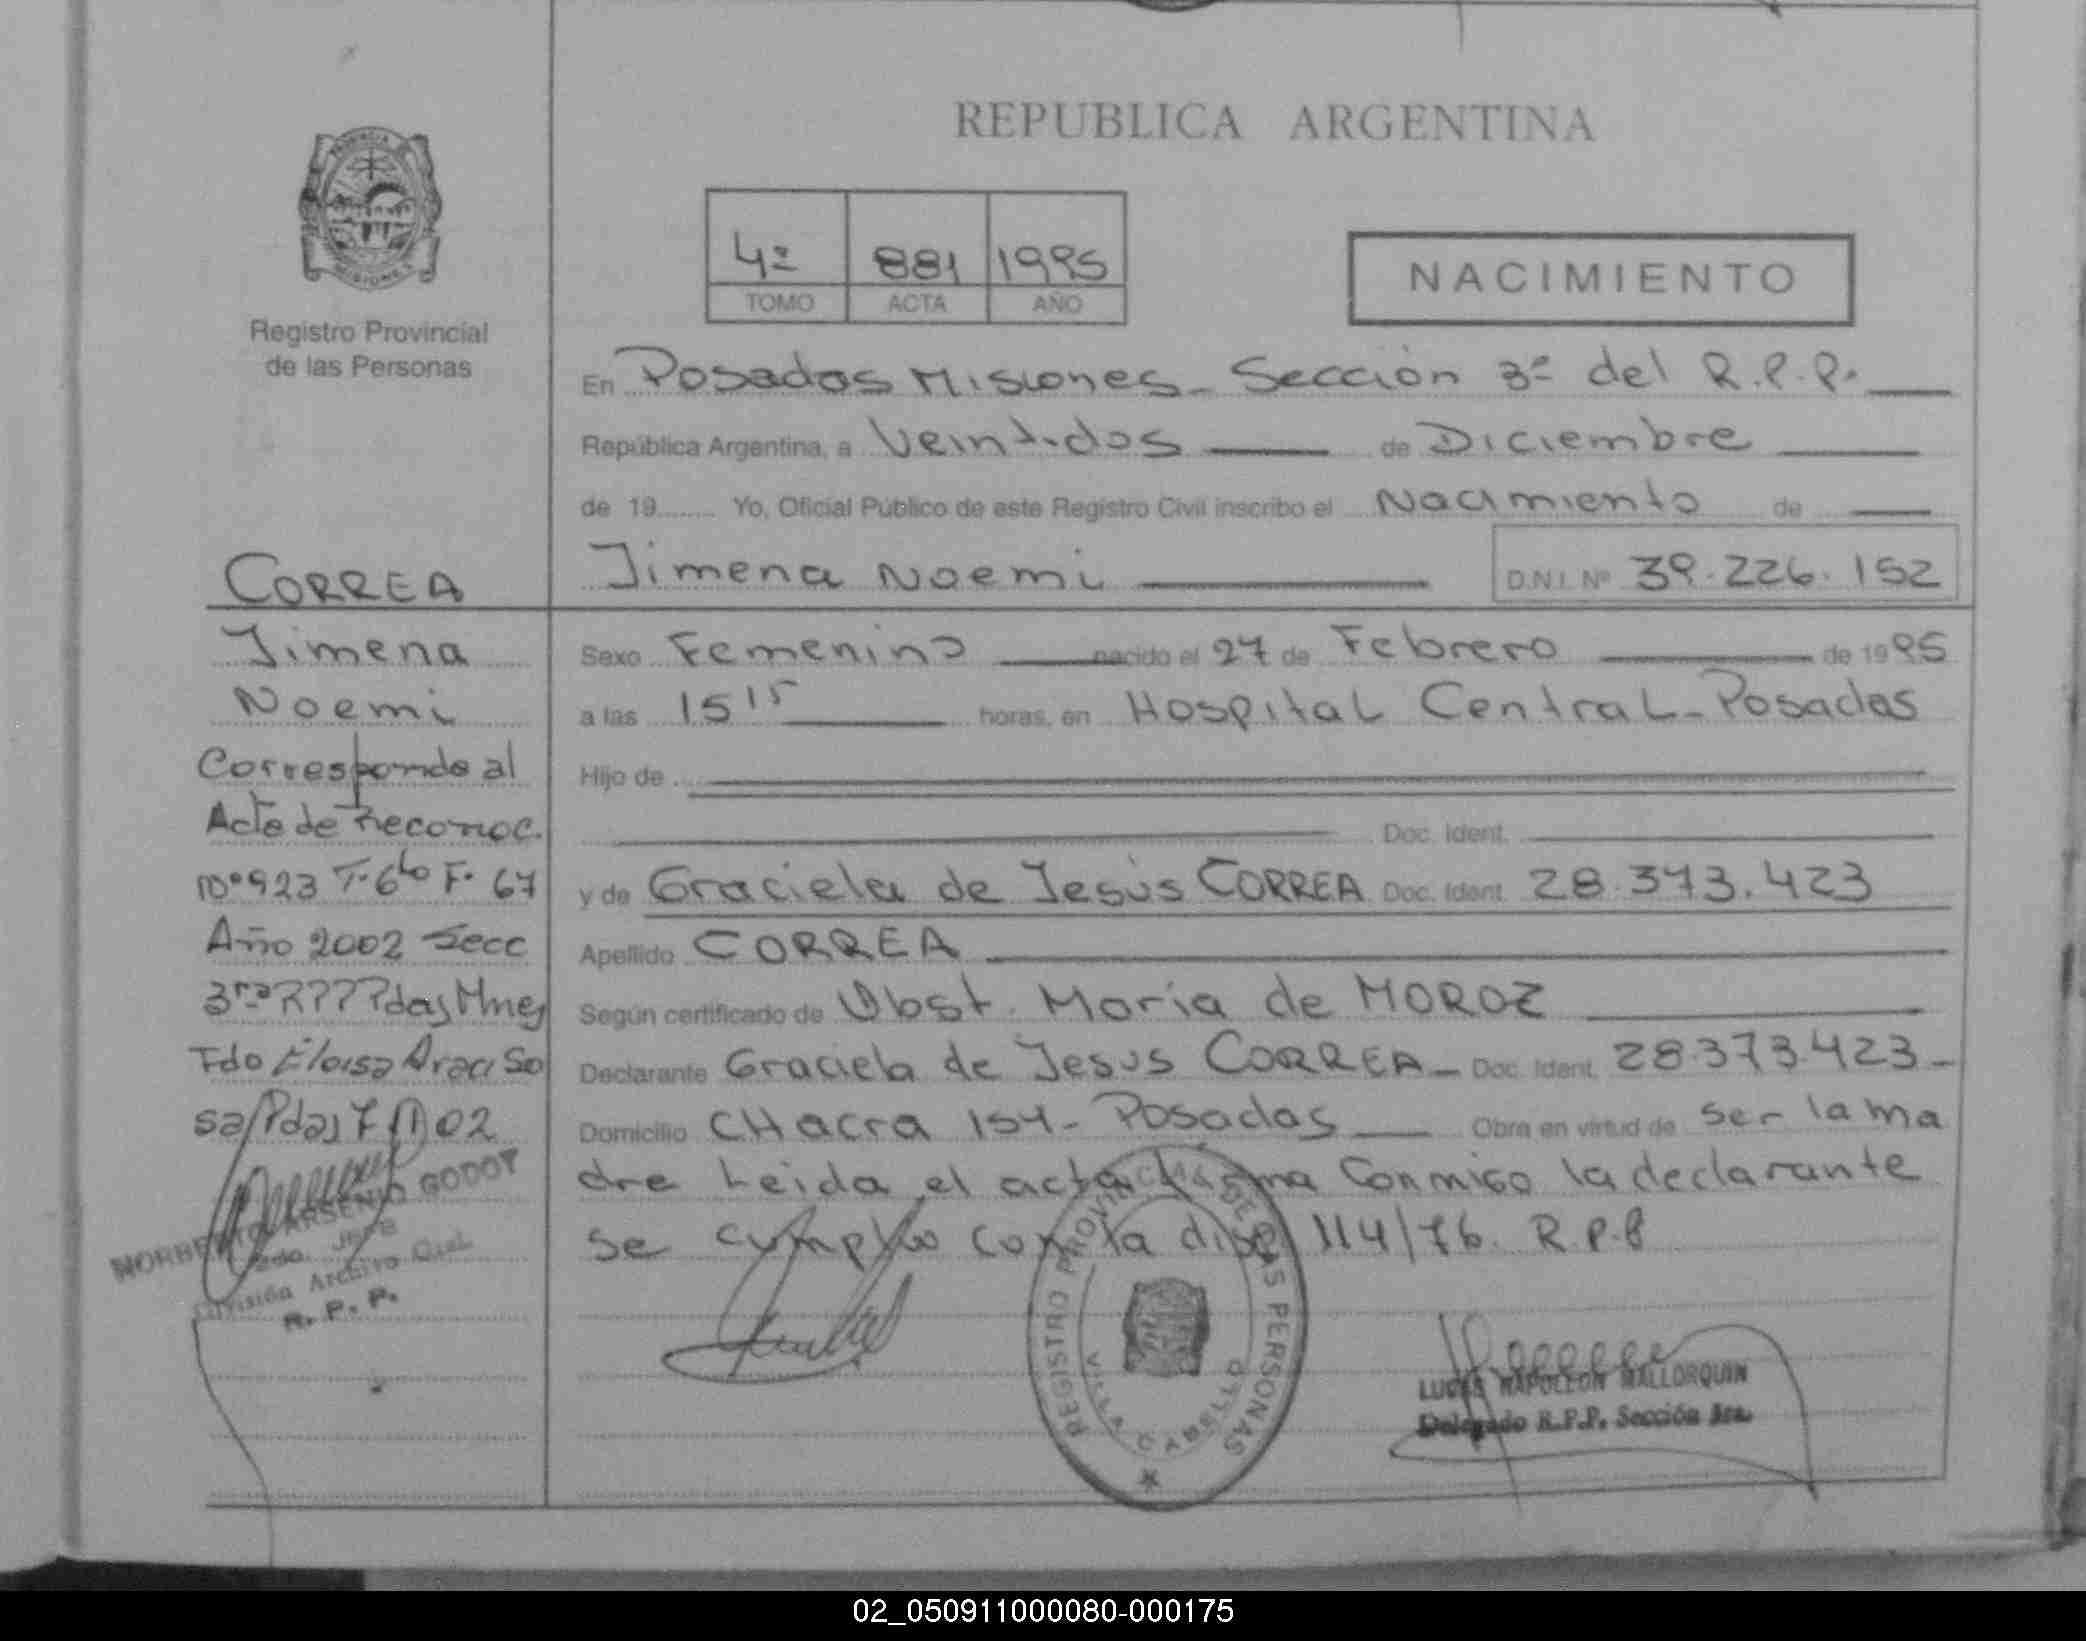 REPUBLICA ARGENTINA
PROVINCIA
MISIONES
Registro Provincial
de las Personas
4º 881 1995
TOMO ACTA AÑO
NACIMIENTO
En Posadas Misiones - Sección 3ª del R.P.P.
República Argentina, a Veintidos de Diciembre
de 19........ Yo, Oficial Público de este Registro Civil inscribo el Nacimiento de
Jimena Noemi D.N.I. Nº 39.226.152
Sexo Femenino nacido el 27 de Febrero de 1995
a las 15 15 horas, en Hospital Central - Posadas
Hijo de
Doc. Ident.
y de Graciela de Jesús CORREA Doc. Ident. 28.373.423
Apellido CORREA
Según certificado de Obst. Maria de MOROZ
Declarante Graciela de Jesus CORREA - Doc. Ident. 28.373.423 -
Domicilio CHacra 154 - Posadas Obra en virtud de ser la ma
dre Leida el acta firma Conmigo la declarante
se cumplio con la disp 114/76. R.P.P
CORREA
Jimena
Noemi
Corresponde al
Acta de Reconoc.
Nº 923 T. 6to F. 67
Año 2002 Secc
3ra R???Pdas Mnes
Fdo Eloisa Araci So
sa/Pdas 7 02
NORBERTO ARSENIO GODOY
2do. JEFE
División Archivo Gral.
R. P. P.
REGISTRO PROVINCIAL DE LAS PERSONAS
VILLA CABELLO
LUCAS NAPOLEON MALLORQUIN
Delegado R.P.P. Sección 3ra.
02_050911000080-000175